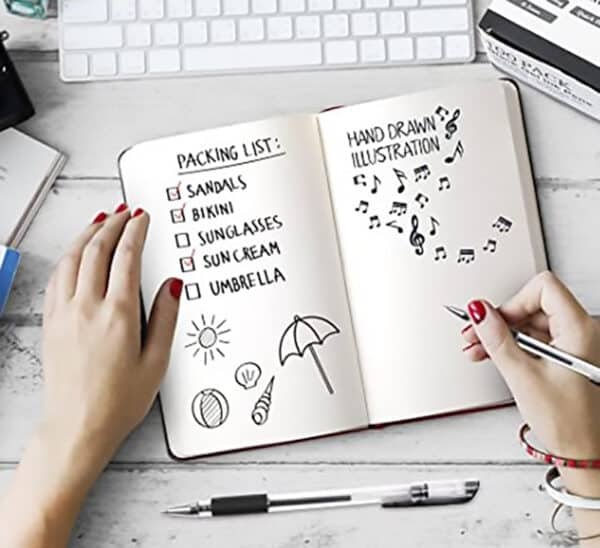 PACKING LIST:
SANDALS
BIKINI
SUNGLASSES
SUN CREAM
UMBRELLA
HAND DRAWN
ILLUSTRATION
100 PACK